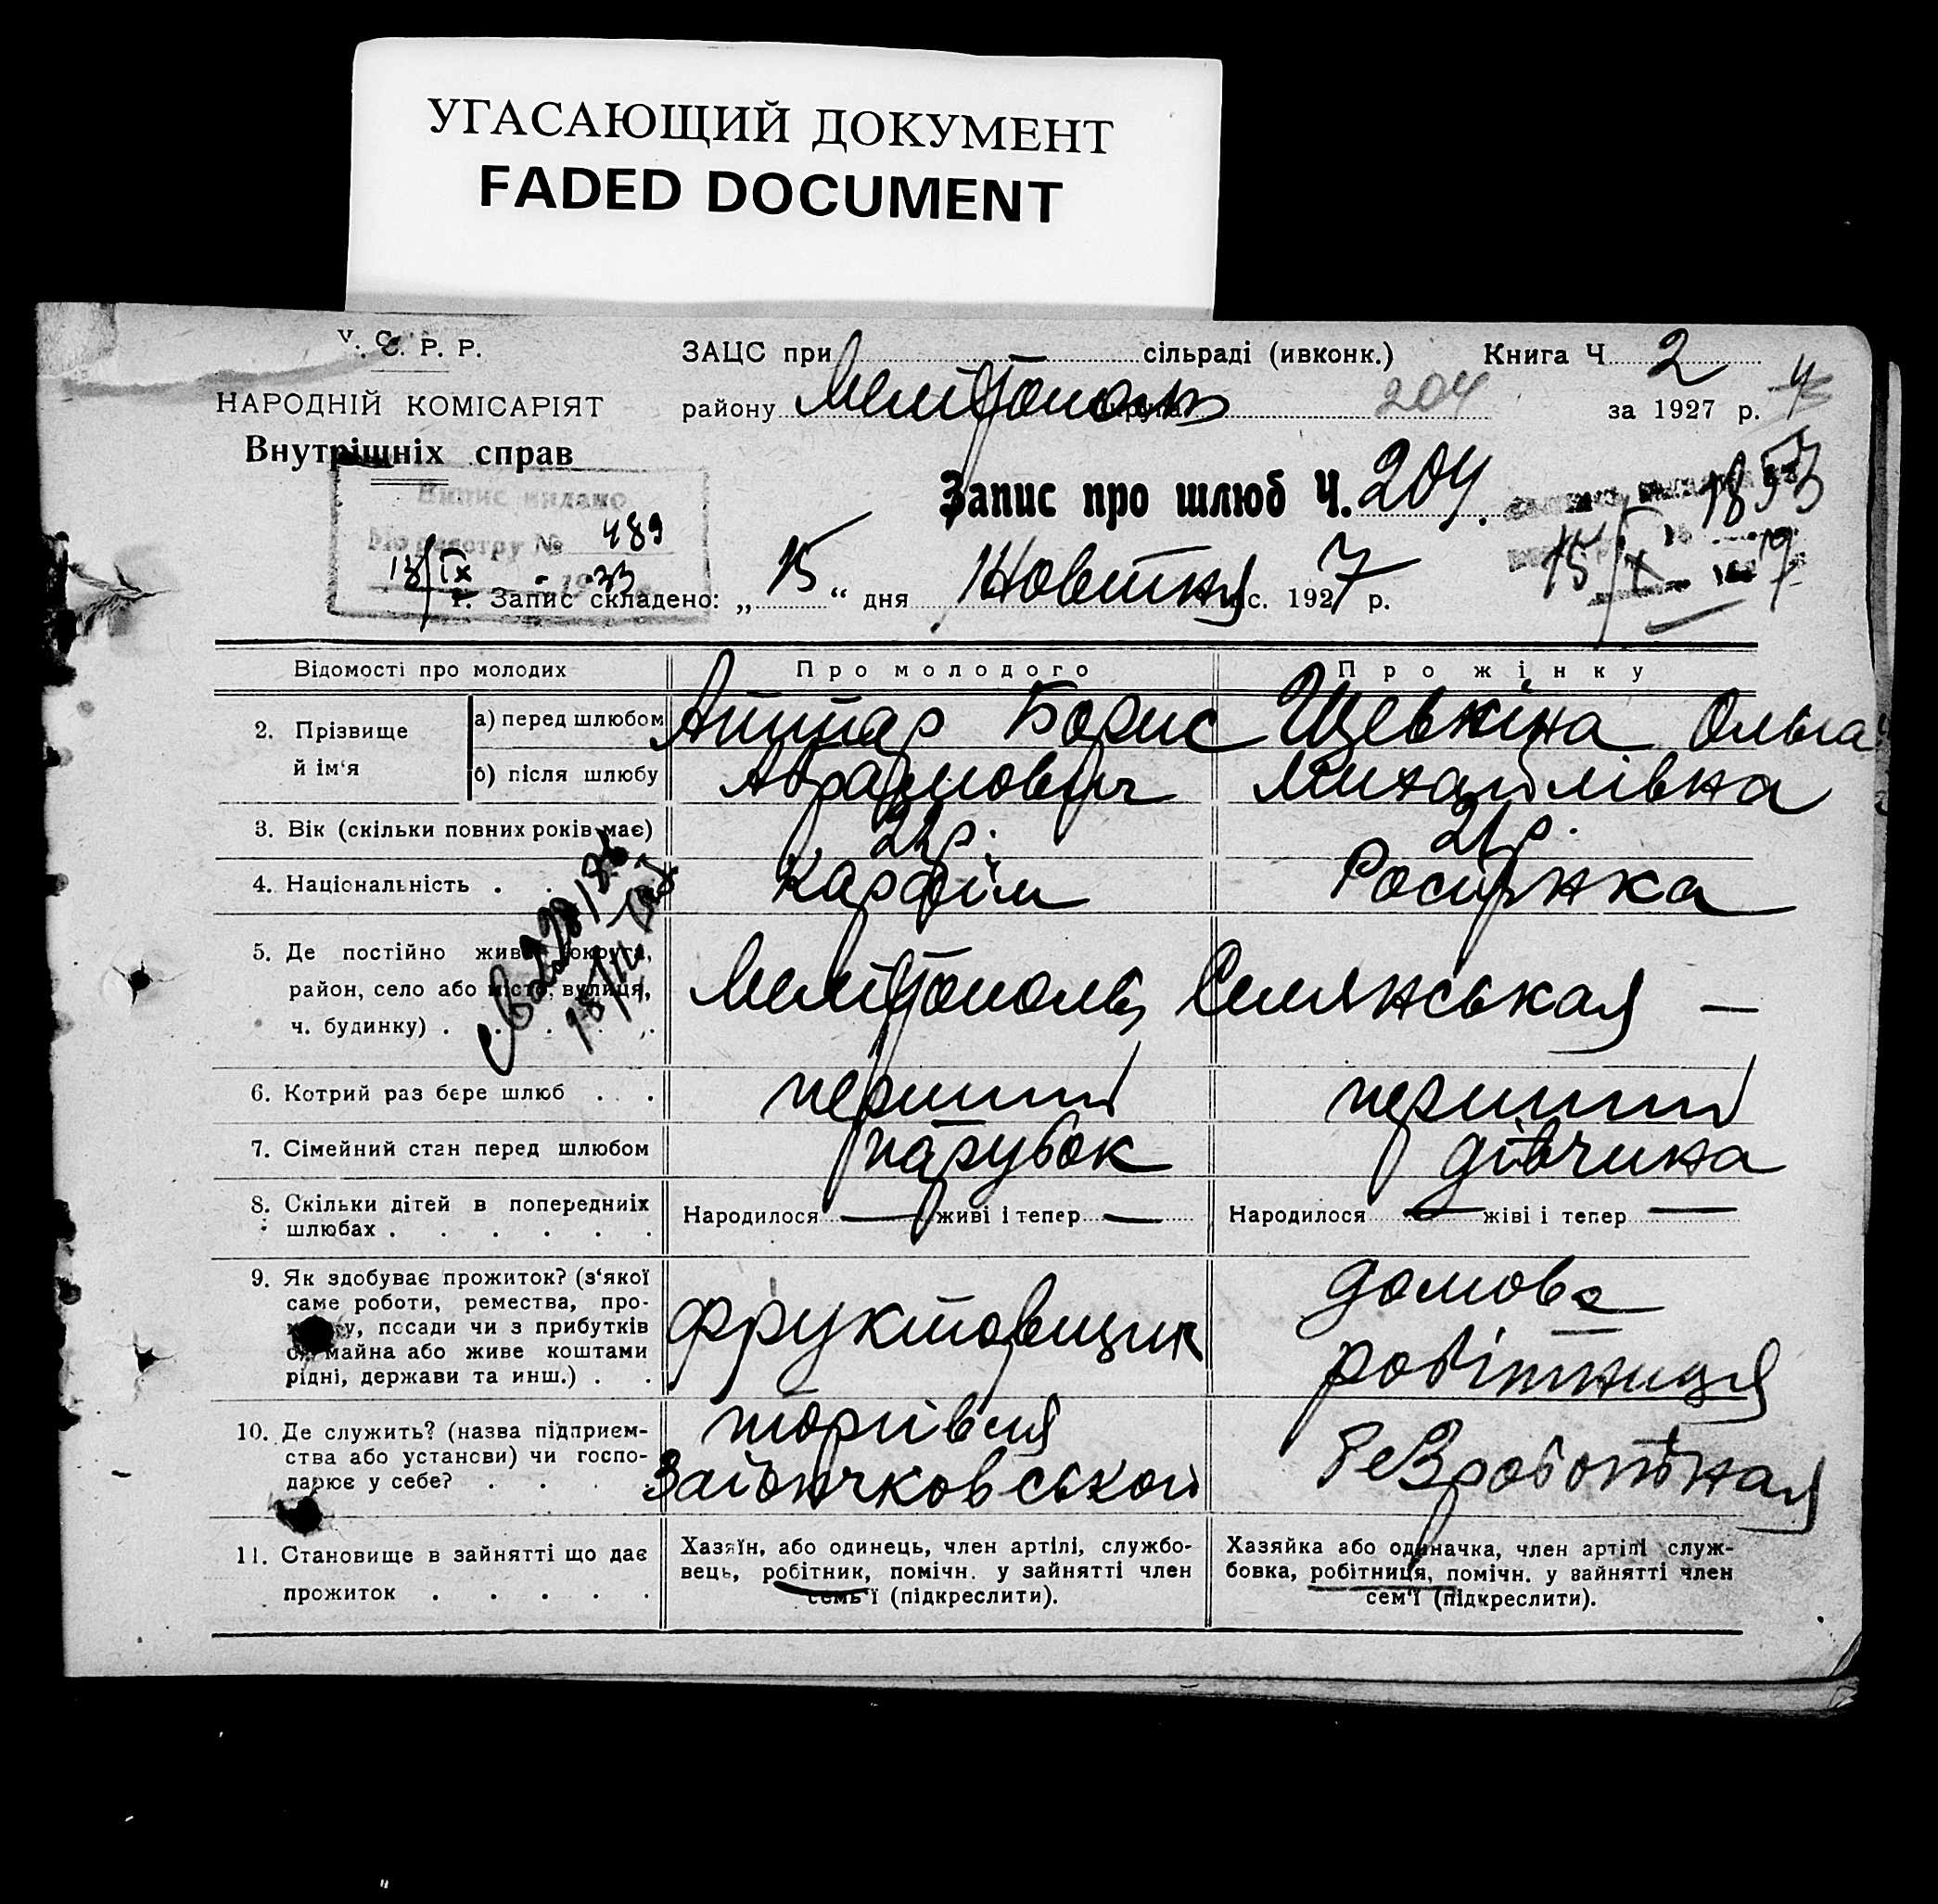 УГАСАЮЩИЙ ДОКУМЕНТ
FADED DOCUMENT
У. С. Р. Р.
ЗАЦС при сільраді (ивконк.) Книга Ч 2
НАРОДНІЙ КОМІСАРІЯТ
району Мелітополь 204 за 1927 р.
Внутрішніх справ
Випис видано
По реєстру № 489
Запис про шлюб Ч. 204.
1853
13/IX 33
15/X
1. Запис складено: „ 15 “ дня Жовтня с. 1927 р.
Відомості про молодих
Про молодого
Про жінку
2. Прізвище й ім'я
а) перед шлюбом
б) після шлюбу
Аттар Борис
Абрамович
Щевкіна Ольга
Михайлівна
3. Вік (скільки повних років має)
21 р.
4. Національність . .
Караїм
Росіянка
5. Де постійно живе (округа,
район, село або місто, вулиця,
ч. будинку) . . . . .
Мелітополь, Слмянськая —
6. Котрий раз бере шлюб . . .
перший
перший
7. Сімейний стан перед шлюбом
парубок
дівчина
8. Скільки дітей в попередниіх
шлюбах . . . . . .
Народилося — живі і тепер —
Народилося — жіві і тепер —
9. Як здобуває прожиток? (з'якої
саме роботи, ремества, про-
у, посади чи з прибутків
майна або живе коштами
рідні, держави та инш.) . .
фруктовщик
домова
робітниця
10. Де служить? (назва підприєм-
ства або установи) чи госпо-
дарює у себе? . . .
торгівля
Зайончковської
безроботная
11. Становище в зайнятті що дає
прожиток . . . . .
Хазяїн, або одинець, член артілі, службо-
вець, робітник, помічн. у зайнятті член
семь'ї (підкреслити).
Хазяйка або одиначка, член артілі служ-
бовка, робітниця, помічн. у зайнятті член
сем'ї (підкреслити).